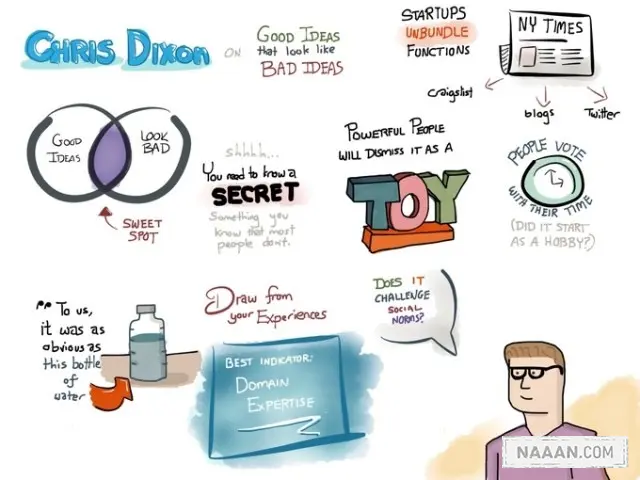 CHRIS DIXON
ON
GOOD IDEAS
that look like
BAD IDEAS
STARTUPS
UNBUNDLE
FUNCTIONS
NY TIMES
Craigslist
blogs
Twitter
GOOD
IDEAS
LOOK
BAD
SWEET
SPOT
shhhh...
You need to know a
SECRET
Something you
know that most
people don't.
POWERFUL PEOPLE
WILL DISMISS IT AS A
TOY
PEOPLE VOTE
WITH THEIR TIME
(DID IT START
AS A HOBBY?)
"To us,
it was as
obvious as
this bottle
of
water
Draw from
your Experiences
BEST INDICATOR:
DOMAIN
EXPERTISE
DOES IT
CHALLENGE
SOCIAL
NORMS?
NAAAN.COM